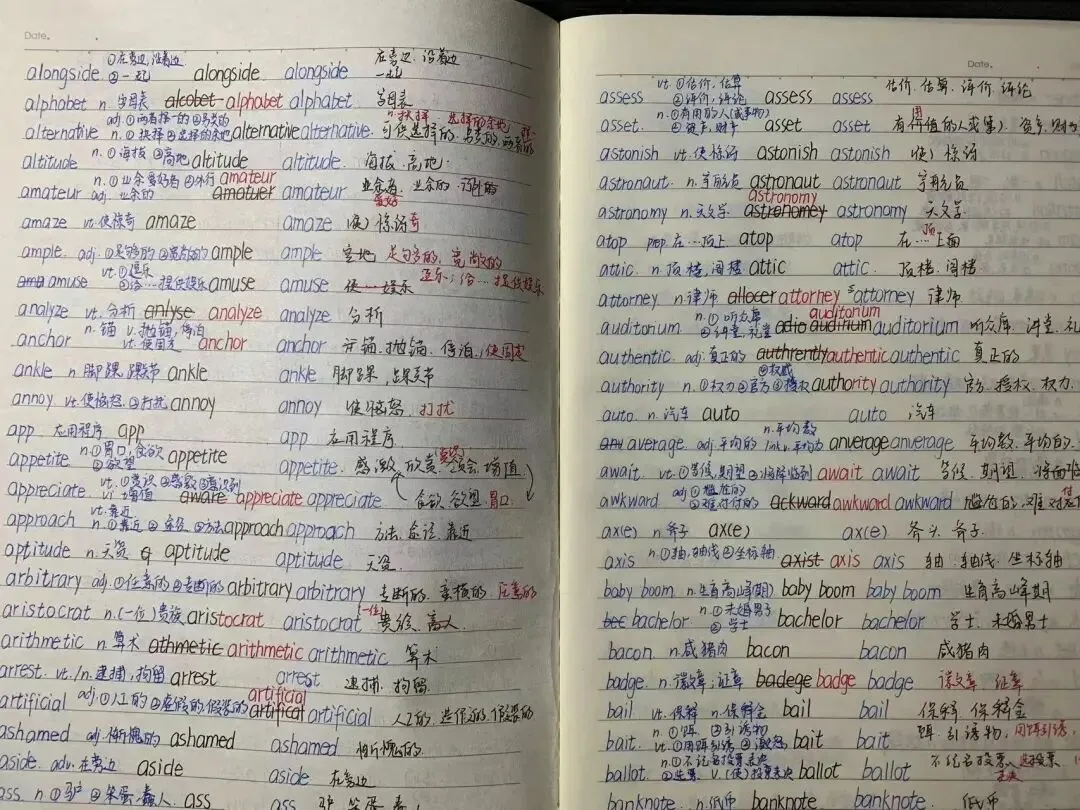 Date.
alongside. ①在旁边,沿着边 ②一起 alongside alongside 在旁边、沿着边 一起
alphabet n. 字母表 alcobet alphabet alphabet 字母表
alternative adj. ①两者择一的 ②另类的 n. ①抉择 ②选择的余地 alternative alternative. 可供选择的、另类的 n.抉择 选择的余地
altitude n. ①海拔 ②高地 altitude altitude. 海拔、高地.
amateur n. ①业余爱好者 ②外行 adj. 业余的 amateur amatuer amateur 业余 爱好 业余的
amaze vt.使惊奇 amaze amaze (使)惊讶奇
ample. adj. ①足够的 ②宽敞的 ample ample 足够多的、宽敞的
amuse vt. ①逗乐 ②给…提供娱乐 amuse amuse 使…娱乐 逗乐;给…提供娱乐
analyze vt.分析 anlyse analyze analyze 分析
anchor n.锚 v.抛锚,停泊 vt.使固定 anchor anchor 锚、抛锚、停泊,使固定
ankle n.脚踝,踝关节 ankle ankle 脚踝,踝关节
annoy vt.使恼怒 ②打扰 annoy annoy 使恼怒 打扰
app 应用程序 app app 应用程序
appetite n.①胃口,食欲 ②欲望 appetite appetite. 感激、欣赏、领会 增值
appreciate. vt. ①意识 vi.增值 aware appreciate appreciate 食欲 欲望、胃口
approach vt.靠近 n.①靠近 ②途径 ③方法 approach approach 方法、途径、靠近
aptitude n.天资 aptitude aptitude 天资.
arbitrary adj.①任意的 ②专断的 arbitrary arbitrary 专断的、任意的
aristocrat n.(一位)贵族 aristocrat aristocrat (一位)贵族、高人
arithmetic n.算术 athmetic arithmetic arithmetic 算术
arrest. vt./n.逮捕,拘留 arrest arrest 逮捕、拘留
artificial adj.①人工的 ②虚假的,假装的 artificial artifical artificial 人工的、虚假的、假装的
ashamed adj.惭愧的 ashamed ashamed 惭愧的.
aside. adv.在旁边 aside aside 在旁边
ass n.①驴 ②笨蛋,蠢人 ass 驴 笨蛋
Date.
assess vt.①估价,估算 ②评价,评论 assess assess 估价、估算、评价、评论
asset. n.①有用的人(或事物) ②资产,财产 asset asset 有用价值的人(或事)、资产
astonish vt.使惊讶 astonish astonish (使)惊讶
astronaut. n.宇航员 astronaut astronaut 宇航员
astronomy n.天文学. astronomy astronomey astronomy 天文学
atop prep.在…顶上 atop atop 在…顶上面
attic. n.顶楼、阁楼 attic attic. 顶楼、阁楼
attorney n.律师 allocer attorney attorney 律师
auditorium n.①听众席 ②讲堂,礼堂 auditorium adio audirium auditorium 听众席、讲堂、礼
authentic. adj.真正的 authrently authentic authentic 真正的
authority n.①权力 ②官方 ③授权 ④权威 authority authority 官方、授权、权力.
auto. n.汽车 auto auto 汽车
average. n.平均数 adj.平均的 average anverage 平均数、平均的
await. vt.①等候,期望 ②将降临到 await await 等候、期望、将面临
awkward adj ①尴尬的 ②难对付的 ackward awkward awkward 尴尬的、难对付
ax(e) n.斧子 ax(e) ax(e) 斧头 斧子.
axis n.①轴,轴线 ②坐标轴 axist axis axis 轴 轴线、坐标轴
baby boom n.生育高峰(期) baby boom baby boom 生育高峰期
bachelor n.①未婚男子 ②学士 bachelor bachelor 学士、未婚男士
bacon n.咸猪肉 bacon bacon 咸猪肉
badge. n.徽章,证章 badege badge badge 徽章,证章
bail vt.保释 n.保释金 bail bail 保释 保释金
bait. n.①饵 ②引诱物 vt.①用饵引诱 ②激怒 bait bait 饵、引诱物,用饵引诱,
ballot n.①不记名投票表决 ②选票 v.(使)投票表决 ballot ballot 不记名投票、选票
banknote n.纸币 banknote banknote 纸币